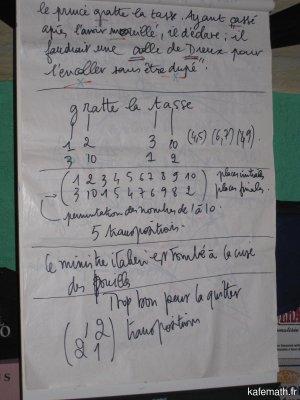 le prince gratte la tasse. Ayant cassé
après l'avoir mouillé, il déclare ; il
faudrait une colle de Dreux pour
l'encoller sans être dupé".
gratte la tasse
1 2 3 10 (4,5) (6,7) (8,9)
3 10 1 2
1 2 3 4 5 6 7 8 9 10 places initiales
3 10 1 5 4 7 6 9 8 2 places finales
permutation des nombres de 1 à 10.
5 transpositions.
Le ministre italien est tombé à la cuse
des
Trop bon pour la quitter
1 2 transpositions
2 1
kafemath.fr